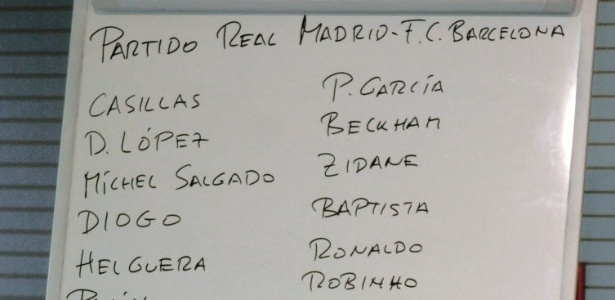 PARTIDO REAL MADRID - F.C. BARCELONA
CASILLAS
D. LÓPEZ
MÍCHEL SALGADO
DIOGO
HELGUERA
P. GARCÍA
BECKHAM
ZIDANE
BAPTISTA
RONALDO
ROBINHO